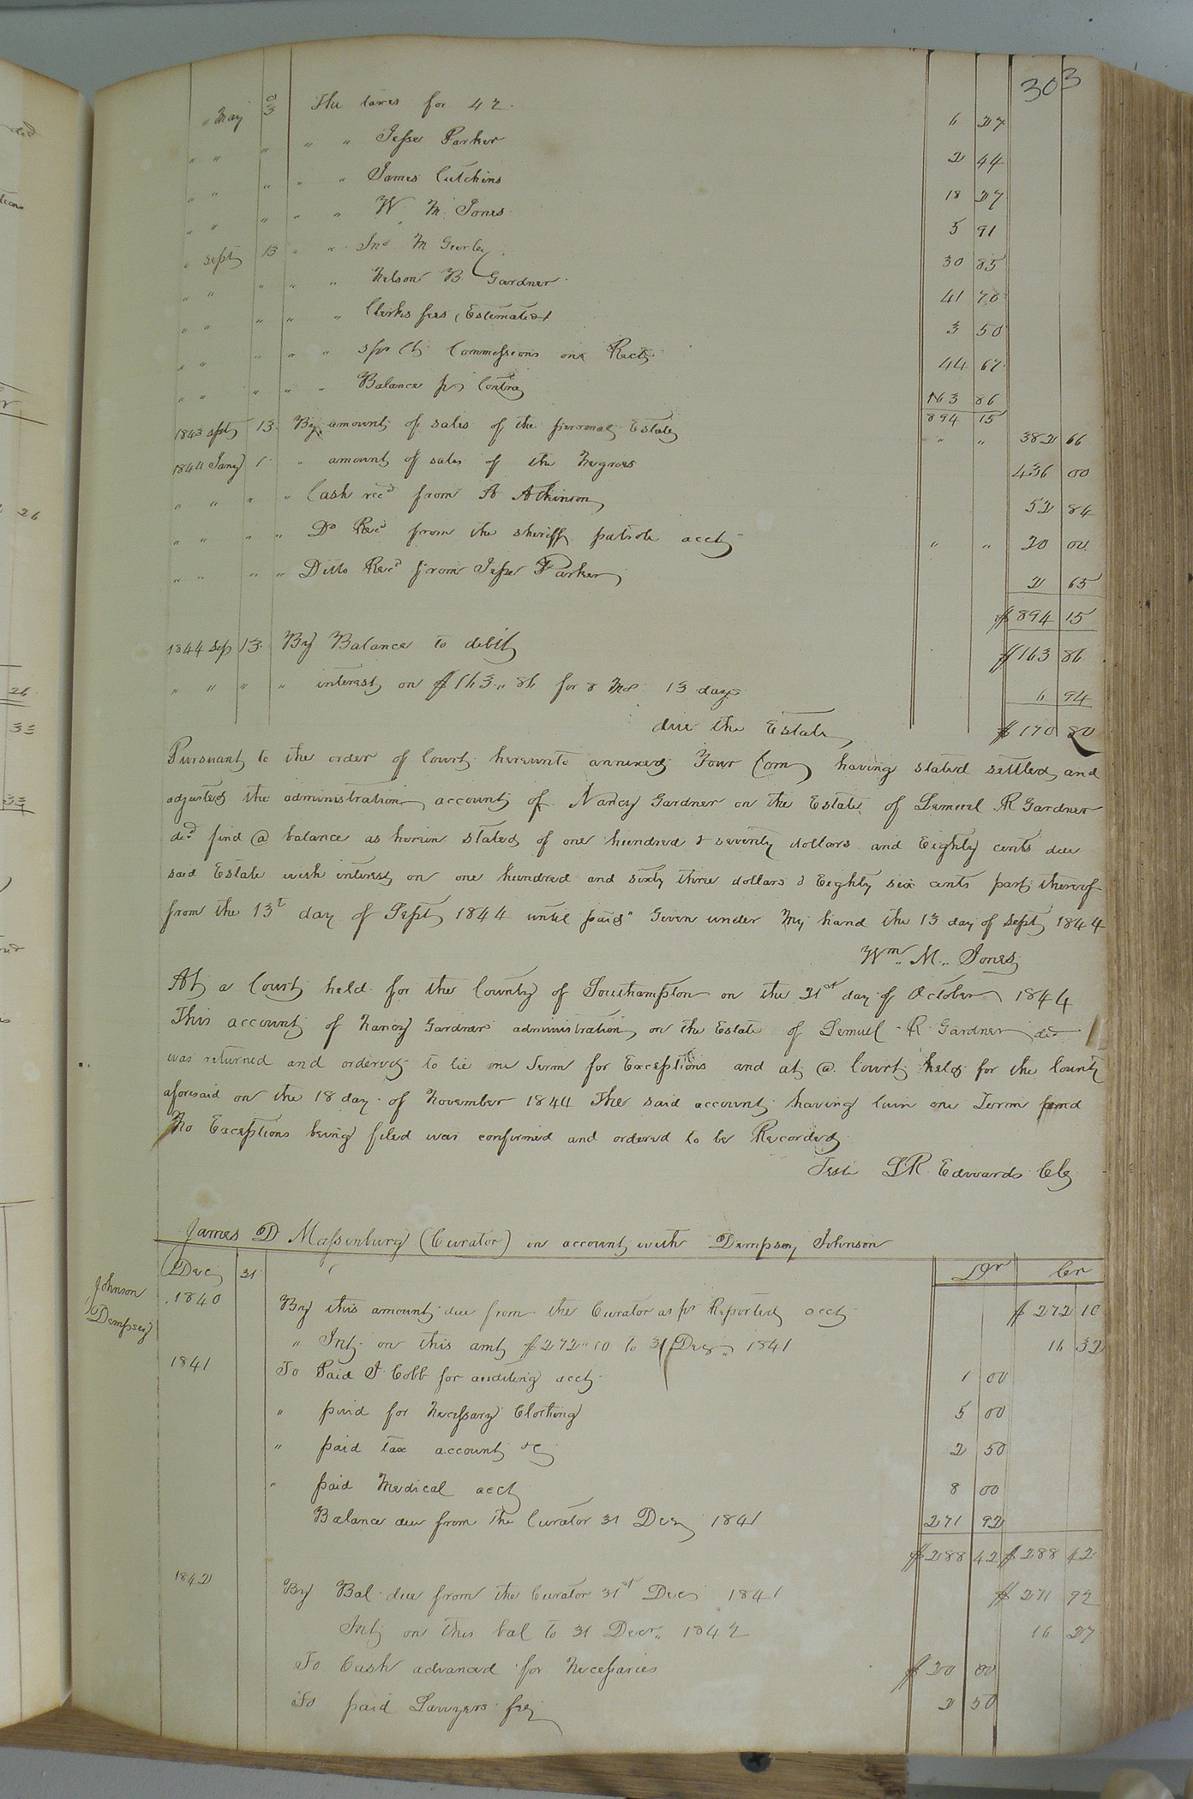 303
" May 3 The taxes for 42. 6 27
" " " " " Jesse Parker 2 44
" " " " " James Cutchins 18 27
" " " " " W. M. Jones 5 91
" Sept 13 " " Jno M Gurley 30 85
" " " " " Nelson B Gardner 41 70
" " " " " Clerks fees (Estimated 3 50
" " " " " 5 pr Ct Commissions on Rects 44 67
" " " " " Balance pr Contra 163 86
894 15
1843 Sept 13 By amount of sales of the personal Estate " " 382 66
1844 Jany 1 " amount of sales of the Negroes 436 00
" " " " Cash recd from A Atkinson 52 84
" " " " Do Recd from the sheriff patrole acct " " 20 00
" " " " Ditto Recd from Jesse Parker 2 65
$894 15
1844 Sep 13 By Balance to debit $163 86
" " " " interest on $163.86 for 8 Mos 13 days 6 94
due the Estate $170 80
Pursuant to the order of Court hereunto annexed Your Com having stated settled and
adjusted the administration account of Nancy Gardner on the Estate of Lemuel R Gardner
decd find @ balance as herein stated of one hundred & seventy dollars and Eighty cents due
said Estate with interest on one hundred and sixty three dollars & Eighty six cents part thereof
from the 13t day of Sept 1844 until paid" Given under My hand the 13 day of Sept 1844
Wm. M. Jones
At a Court held for the County of Southampton on the 21st day of October 1844
This account of Nancy Gardners administration on the Estate of Lemuel R Gardner decd
was returned and ordered to lie one Term for Exceptions and at @ Court held for the County
aforesaid on the 18 day of November 1844 The said account having lain one Term and
No Exceptions being filed was confirmed and ordered to be Recorded
Teste L R Edwards Clk
James D Massenburg (Curator) in account with Dempsey Johnson
Johnson
Dempsey
Dec 31 Dr Cr
1840 By this amount due from the Curator as pr Reported acct $272 10
" Int on this amt $272.10 to 31 Dec. 1841 16 32
1841 To Paid J Cobb for auditing acct 1 00
" paid for Necessary Clothing 5 00
" paid tax account &c 2 50
" paid Medical acct 8 00
Balance due from the Curator 31 Dec 1841 271 92
$288 42 $288 42
1842 By Bal due from the Curator 31st Dec 1841 $271 92
Int on this bal to 31 Decr. 1842 16 27
To Cash advanced for Necessaries $20 00
To paid Lawyers fee 2 50